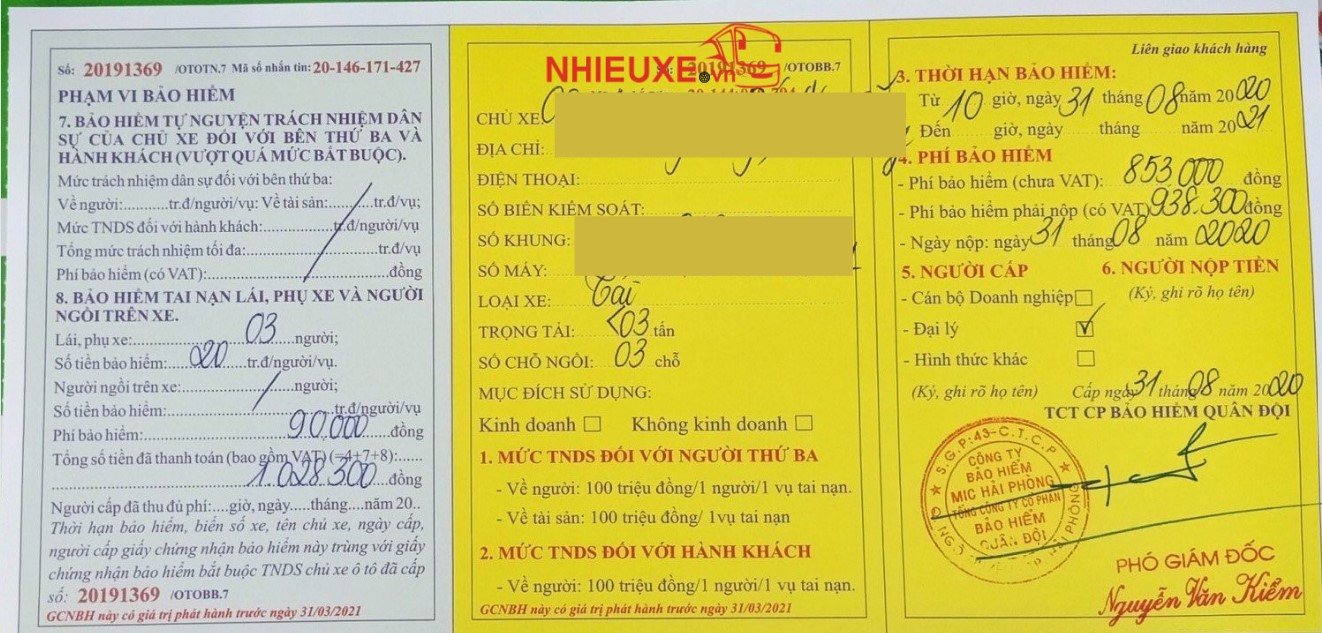 Số: 20191369 /OTOTN.7 Mã số nhắn tin: 20-146-171-427
PHẠM VI BẢO HIỂM
7. BẢO HIỂM TỰ NGUYỆN TRÁCH NHIỆM DÂN
SỰ CỦA CHỦ XE ĐỐI VỚI BÊN THỨ BA VÀ
HÀNH KHÁCH (VƯỢT QUÁ MỨC BẮT BUỘC).
Mức trách nhiệm dân sự đối với bên thứ ba:
Về người:..........tr.đ/người/vụ: Về tài sản:..........tr.đ/vụ;
Mức TNDS đối với hành khách:..........tr.đ/người/vụ
Tổng mức trách nhiệm tối đa:..........tr.đ/vụ
Phí bảo hiểm (có VAT):..........đồng
8. BẢO HIỂM TAI NẠN LÁI, PHỤ XE VÀ NGƯỜI
NGỒI TRÊN XE.
Lái, phụ xe: 03 người;
Số tiền bảo hiểm: 20 tr.đ/người/vụ.
Người ngồi trên xe..........người;
Số tiền bảo hiểm:..........tr.đ/người/vụ
Phí bảo hiểm: 90.000 đồng
Tổng số tiền đã thanh toán (bao gồm VAT) (=4+7+8):......
1.028.300 đồng
Người cấp đã thu đủ phí:....giờ, ngày.....tháng....năm 20..
Thời hạn bảo hiểm, biển số xe, tên chủ xe, ngày cấp,
người cấp giấy chứng nhận bảo hiểm này trùng với giấy
chứng nhận bảo hiểm bắt buộc TNDS chủ xe ô tô đã cấp
số: 20191369 /OTOBB.7
GCNBH này có giá trị phát hành trước ngày 31/03/2021
NHIEUXE.vn
20191369 /OTOBB.7
CHỦ XE
ĐỊA CHỈ:
ĐIỆN THOẠI:
SỐ BIỂN KIỂM SOÁT:
SỐ KHUNG:
SỐ MÁY:
LOẠI XE: Tải
TRỌNG TẢI: <03 tấn
SỐ CHỖ NGỒI: 03 chỗ
MỤC ĐÍCH SỬ DỤNG:
Kinh doanh ☐ Không kinh doanh ☐
1. MỨC TNDS ĐỐI VỚI NGƯỜI THỨ BA
- Về người: 100 triệu đồng/1 người/1 vụ tai nạn.
- Về tài sản: 100 triệu đồng/ 1vụ tai nạn
2. MỨC TNDS ĐỐI VỚI HÀNH KHÁCH
- Về người: 100 triệu đồng/1 người/1 vụ tai nạn.
GCNBH này có giá trị phát hành trước ngày 31/03/2021
Liên giao khách hàng
3. THỜI HẠN BẢO HIỂM:
Từ 10 giờ, ngày 31 tháng 08 năm 2020
Đến giờ, ngày tháng năm 2021
4. PHÍ BẢO HIỂM
- Phí bảo hiểm (chưa VAT): 853.000 đồng
- Phí bảo hiểm phải nộp (có VAT) 938.300 đồng
- Ngày nộp: ngày 31 tháng 08 năm 2020
5. NGƯỜI CẤP 6. NGƯỜI NỘP TIỀN
- Cán bộ Doanh nghiệp ☐ (Ký, ghi rõ họ tên)
- Đại lý ☑
- Hình thức khác ☐
(Ký, ghi rõ họ tên) Cấp ngày 31 tháng 08 năm 2020
TCT CP BẢO HIỂM QUÂN ĐỘI
S.G.P:43-C.T.C.P
CÔNG TY
BẢO HIỂM
MIC HẢI PHÒNG
TỔNG CÔNG TY CỔ PHẦN
BẢO HIỂM
QUÂN ĐỘI
PHÓ GIÁM ĐỐC
Nguyễn Văn Kiểm